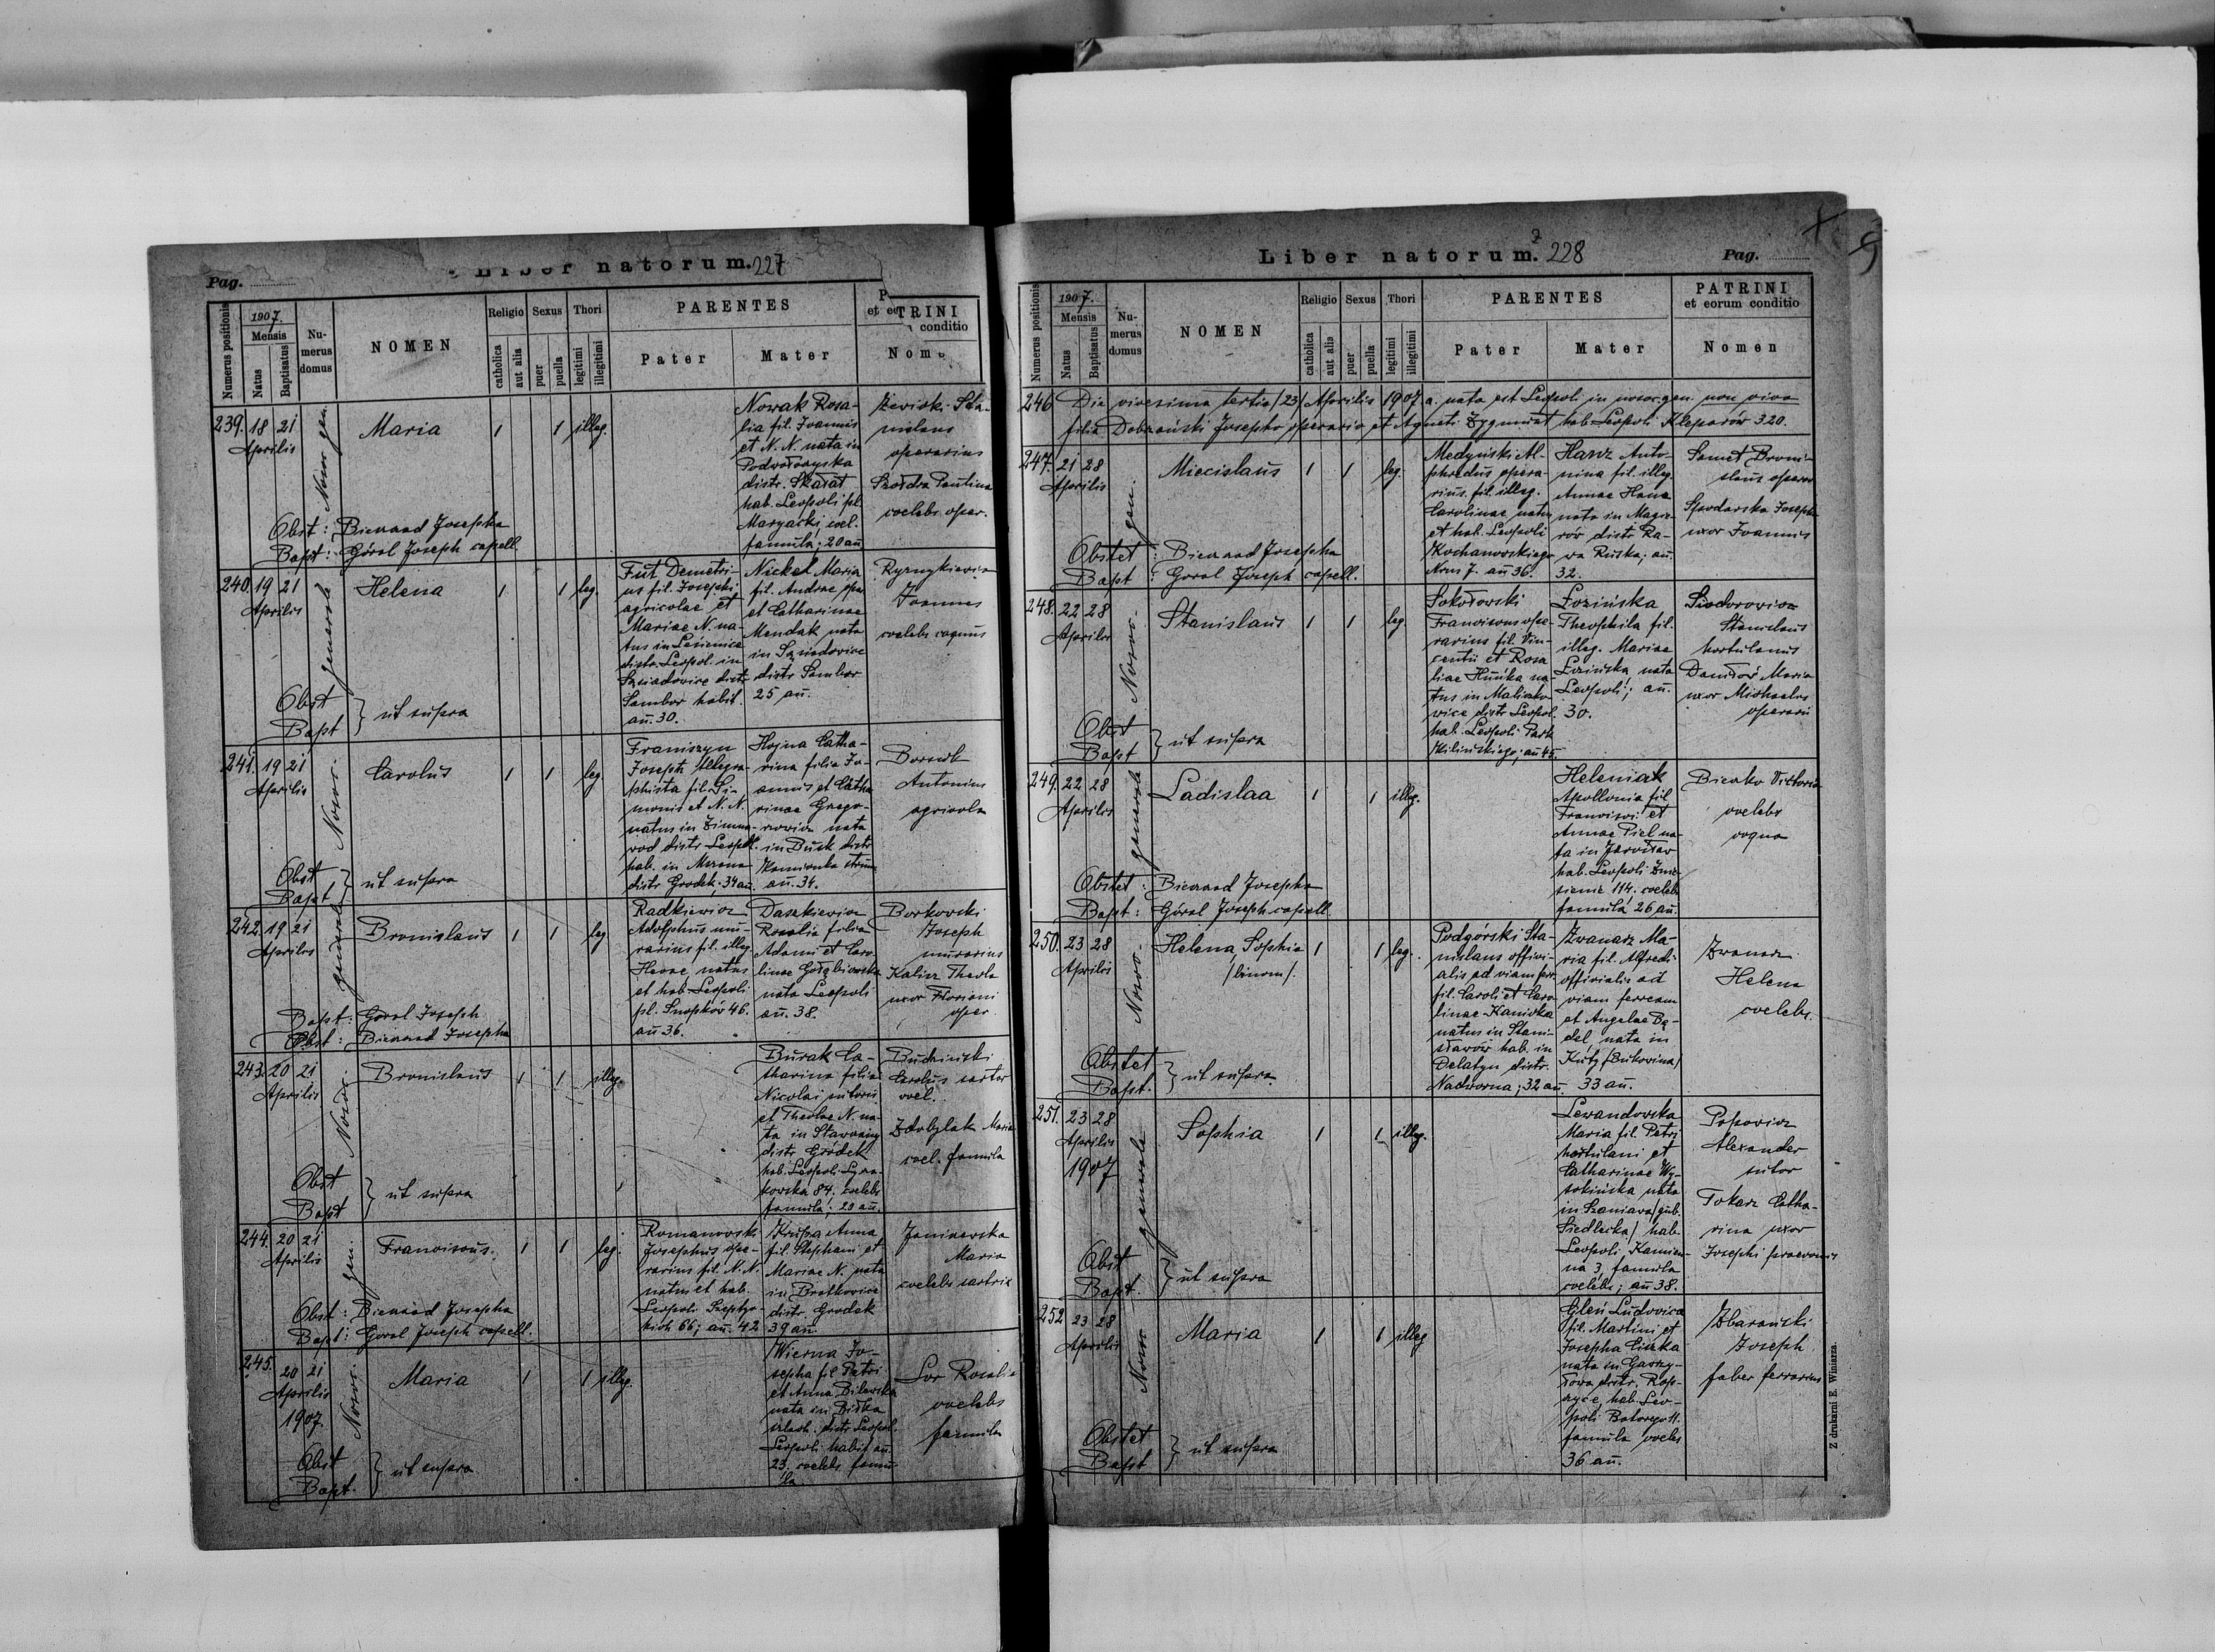 Pag.
Liber natorum. 227
Numerus positionis
1907.
Mensis
Natus
Baptisatus
Numerus domus
NOMEN
Religio
catholica
aut alia
Sexus
puer
puella
Thori
legitimi
illegitimi
PARENTES
Pater
Mater
PATRINI
et eorum conditio
Nomen
239. 18 21
Aprilis
Maria
1 1 illeg.
Nowak Rosa-
lia fil. Joannis
et N. N. nata in
Podwołoczyska
distr. Skałat
hab. Leopoli pl.
Maryacki, coel.
famula; 20 an
Sta-
nislaus
operarius
Paulina
coelebs oper.
Obst: Bienaad Josepha
Bapt: Góral Joseph capell.
240. 19 21
Aprilis
Helena
1 1 leg.
Fut Demetri-
us fil. Josephi
agricolae et
Mariae N. na-
tus in Lesienice
distr. Leopol. in
Sąsiadowice distr
Sambor habit.
an. 30.
Nickel Maria
fil. Andreae
et Catharinae
Mendak nata
in Sąsiadovice
distr Sambor
25 an.
Joannes
coelebs coquus
Obst
Bapt } ut supra
241. 19 21
Aprilis
Carolus
1 1 leg.
Franiszyn
Joseph telegra-
phista fil. Si-
monis et N. N.
natus in Zimna-
vod distr Leopol.
hab. in Mszana
distr Grodek. 34 an.
Hojna Catha-
rina filia Jo-
annis et Catha
rinae Grego-
rowicz nata
in Busk distr
Kamionka strum
an. 34.
Antonius
agricola
Obst
Bapt } ut supra
242. 19 21
Aprilis
Bronislaus
1 1 leg
Radkiewicz
Adolphus mu-
rarius fil. illeg.
natus
et hab. Leopoli
pl. Snopków 46.
an 36.
Daszkiewicz
Rosalia filia
Adami et Caro-
linae Gołębiowska
nata Leopoli
an. 38.
Borkovski
Joseph
murarius
Kalisz Thecla
uxor Floriani
oper.
Bapt: Goral Joseph
Obst: Bienaad Josepha
243. 20 21
Aprilis
Bronislaus
1 1 illeg.
Burak Ca-
tharina filia
Nicolai sutoris
et Theclae N. na-
ta in Stawczany
distr Gródek
hab. Leopoli Łycza-
kowska 84. coelebs
famula; 20 an.
Budzinski
Carolus sartor
coel.
Zdobylak Maria
coel. famula
Obst
Bapt } ut supra
244. 20 21
Aprilis
Franciscus.
1 1 leg.
Romanovski
Josephus ope-
rarius fil. N. N.
natus et hab.
Leopoli Szeptyc-
kich 66; an. 42
Krupa Anna
fil. Stephani et
Mariae N. nata
in Bratkovice
distr Grodek
39 an.
Janiszewska
Maria
coelebs sartrix
Obst: Bienaad Josepha
Bapt: Goral Joseph capell.
245. 20 21
Aprilis
1907.
Maria
1 1 illeg.
Wierna Jo-
sepha fil Petri
et Anna Bilewska
nata in Biłka
szlach. distr Leopol.
Leopoli habit an.
23. coelebs famu-
la
Rosalia
coelebs
famula
Obst
Bapt. } ut supra
Noso-
gen.
generale
Liber natorum. 228
Pag.
Numerus positionis
1907.
Mensis
Natus
Baptisatus
Numerus domus
NOMEN
Religio
catholica
aut alia
Sexus
puer
puella
Thori
legitimi
illegitimi
PARENTES
Pater
Mater
PATRINI
et eorum conditio
Nomen
246 Die vicesima tertia /23/ Aprilis 1907 a. nata est Leopoli in nosoc. gen. non viva
filia Dobrzański Josepho operario et Agneti Zygmunt hab. Leopoli Kleparów 320.
247. 21 28
Aprilis
Miecislaus
1 1 leg.
Medyński Al-
phredus opera-
rius. fil. illeg.
Carolinae natus
et hab. Leopoli
Kochanowskiego
Nrus 7. an 36.
Hanz Anto-
nina fil. illeg.
Annae Hanz
nata in Magie-
rów distr Ra-
va Ruska; an.
32.
Broni-
slaus operar
Spodarska Josepha
uxor Joannis
Obstet: Bienaad Josepha
Bapt: Goral Joseph capell.
248. 22 28
Aprilis
Stanislaus
1 1 leg
Sokołowski
Franciscus ope-
rarius fil Vin-
centii et Rosa
liae Huńka na-
tus in Maliczko-
vice distr Leopol.
hab. Leopoli Park
Kilińskiego; an 45.
Łozińska
Theophila fil.
illeg. Mariae
Łozińska, nata
Leopoli; an.
30.
Siodorowicz
Stanislaus
hortulanus
Maria
uxor Michaelis
operarii
Obst
Bapt } ut supra
249. 22 28
Aprilis
Ladislaa
1 1 illeg.
Heleniak
Apollonia fil
Francisci et
Annae Piel na-
ta in Jarosłav
hab. Leopoli Znie-
sienie 114. coelebs
famula 26 an.
Bienko Victoria
coelebs
coqua
Obstet: Bienaad Josepha
Bapt: Góral Joseph capell.
250. 23 28
Aprilis
Helena, Sophia
/binom/.
1 1 leg.
Podgórski Sta-
nislaus offici-
alis ad viam ferr
fil. Caroli et Caro
linae Kanicka
natus in Stani-
sławów hab. in
Delatyn distr.
Nadworna; 32 an.
Zwanarz Ma-
ria fil. Alfredi
officialis ad
viam ferream
et Angelae Bą-
del nata in
Kuty /Bukovina/
33 an.
Zwanarz
Helena
coelebs.
Obstet
Bapt. } ut supra
251. 23 28
Aprilis
1907
Sophia
1 1 illeg.
Lewandovska
Maria fil. Petri
hortulani et
Catharinae Wy-
sokińska nata
in Szaniava /gub.
Siedlecka/ hab.
Leopoli Kamien-
na 3, famula
coelebs; an 38.
Popovicz
Alexander
sutor
Tokarz Catha-
rina uxor
Josephi
Obst
Bapt. } ut supra
252 23 28
Aprilis
Maria
1 1 illeg
Gleń Ludovica
fil. Martini et
Josepha Ciszka
nata in
distr. Rop-
czyce, hab. Leo-
poli Batorego 11.
famula coelebs
36 an.
Zbarański
Joseph
faber ferrarius
Obstet
Bapt } ut supra
Z drukarni E. Winiarza.